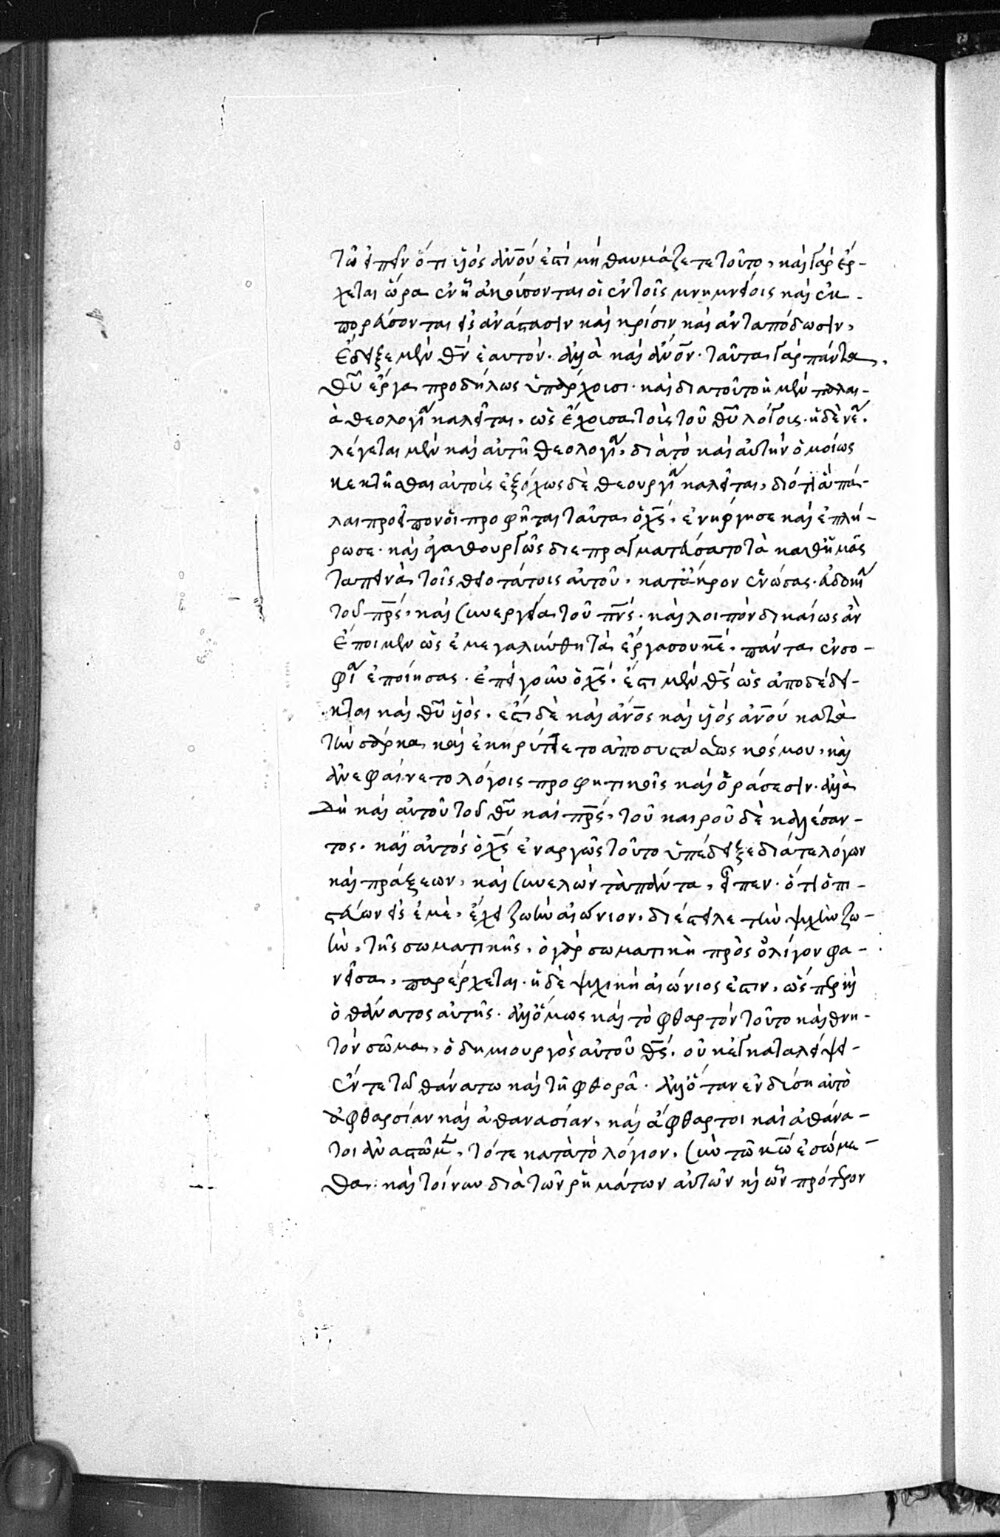 τῶ εἰπεῖν ὅτι υἱὸς ἀν̅ου ἐστί μὴ θαυμάζετε τοῦτο, καὶ γὰρ ἔρ-
χεται ὥρα ἐν ἧ ἀκούσονται οἱ ἐν τοῖς μνημείοις καὶ ἐκ-
πορεύσονται εἰς ἀνάστασιν καὶ κρίσιν καὶ ἀνταπόδωσιν,
ἔδειξε μὲν θ̅ν ἑαυτόν· ἀλλὰ καὶ ἀν̅ον· ταῦτα γὰρ πάντα
θ̅υ ἔργα προδήλως ὑπάρχουσι· καὶ διατοῦτο ἡ μὲν παλαι-
ὰ θεολογία καλεῖται, ὡς ἔχουσα τοὺς τοῦ θ̅υ λόγους· ἡ δὲ νέα
λέγεται μὲν καὶ αὐτὴ θεολογία, διὰ τὸ καὶ αὐτὴν ὁμοίως
κεκτῆσθαι αὐτούς ἐξόχως δὲ θεουργία καλεῖται, διότι ἃ πά-
λαι προεῖπον οἱ προφῆται ταῦτα ὁ χ̅ς ἐνήργησε καὶ ἐπλή-
ρωσε· καὶ ἀγαθουργῶς διεπραγματεύσατο τὰ καθ' ἡμᾶς
ταπεινὰ τοῖς θειοτάτοις αὐτοῦ· κατάκρον ἑνώσας· εὐδοκία
τοῦ π̅ρς· καὶ συνεργεία τοῦ π̅νς· καὶ λοιπὸν δικαίως ἂν
εἴποιμεν ὡς ἐμεγαλύνθη τὰ ἔργα σου κ̅ε· πάντα ἐν σο-
φία ἐποίησας· ἐπεὶ γοῦν ὁ χ̅ς ἔστι μὲν θ̅ς ὡς ἀποδέδει-
κται καὶ θ̅υ υἱός· ἔστι δὲ καὶ ἄν̅ος καὶ υἱὸς ἀν̅ου κατὰ
τὴν σάρκα καὶ ἐκηρύττετο ἀπὸ συστάσεως κόσμου, καὶ
ἀνεφαίνετο λόγοις προφητικοῖς καὶ ὁράσεσιν· ἀλλὰ
δὴ καὶ αὐτοῦ τοῦ θ̅υ καὶ π̅ρς· τοῦ καιροῦ δὲ καλέσαν-
τος· καὶ αὐτὸς ὁ χ̅ς ἐναργῶς τοῦτο ὑπέδειξε διά τε λόγων
καὶ πράξεων, καὶ συνελὼν τὰ πάντα, εἶπεν· ὅτι ὁ πι-
στεύων εἰς ἐμὲ, ἔχει ζωὴν αἰώνιον· διέστειλε τὴν ψυχικὴν ζω-
ὴν, τῆς σωματικῆς, ὁ γὰρ σωματικὴ πρὸς ὀλίγον φα-
νεῖσα, παρέρχεται· ἡ δὲ ψυχικὴ αἰώνιος ἐστιν, ὥσπερ καὶ
ὁ θάνατος αὐτῆς· ἀλλ' ὅμως καὶ τὸ φθαρτὸν τοῦτο καὶ θνη-
τὸν σῶμα, ὁ δημιουργὸς αὐτοῦ θ̅ς· οὐκ ἐγκαταλείψει
ἔν τε τῶ θανάτω καὶ τῆ φθορᾶ· ἀλλ' ὅταν ἐνδύση αὐτὸ
ἀφθαρσίαν καὶ ἀθανασίαν, καὶ ἄφθαρτοι καὶ ἀθάνα-
τοι ἀναστῶμεν, τότε κατὰ τὸ λόγιον, σὺν τῶ κ̅ω ἐσώμε-
θα· καὶ τοίνυν διὰ τῶν ῥημάτων αὐτῶν καὶ ὧν πρότερον